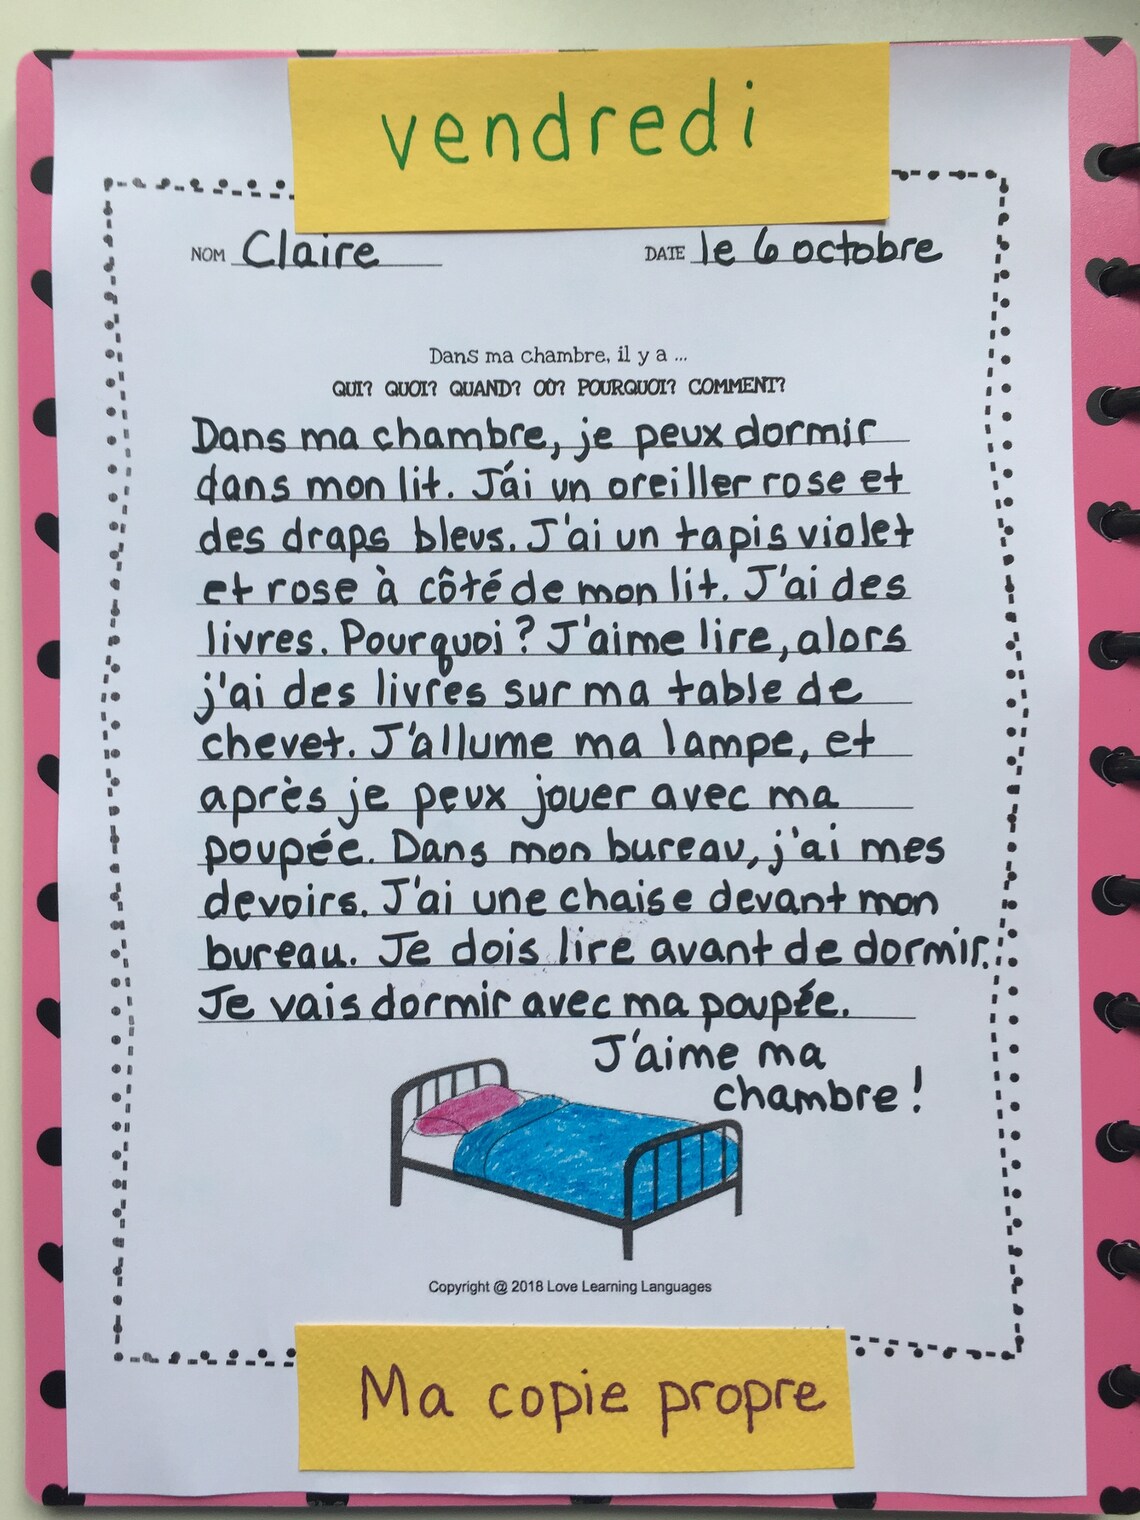 vendredi
NOM Claire DATE le 6 octobre
Dans ma chambre, il y a ...
QUI? QUOI? QUAND? OÙ? POURQUOI? COMMENT?
Dans ma chambre, je peux dormir
dans mon lit. J'ai un oreiller rose et
des draps bleus. J'ai un tapis violet
et rose à côté de mon lit. J'ai des
livres. Pourquoi? J'aime lire, alors
j'ai des livres sur ma table de
chevet. J'allume ma lampe, et
après je peux jouer avec ma
poupée. Dans mon bureau, j'ai mes
devoirs. J'ai une chaise devant mon
bureau. Je dois lire avant de dormir.
Je vais dormir avec ma poupée.
J'aime ma
chambre!
Copyright @ 2018 Love Learning Languages
Ma copie propre